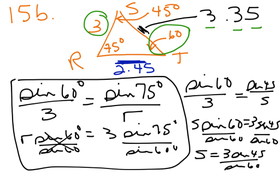 15b.
S 45°
3.35
3
60
75°
R
T
2.45
sin60° / 3 = sin75° / r
r sin60° / sin60 = 3 sin75° / sin60°
sin60 / 3 = sin45 / S
S sin60 / sin60 = 3 sin45 / sin60
S = 3 sin45 / sin60